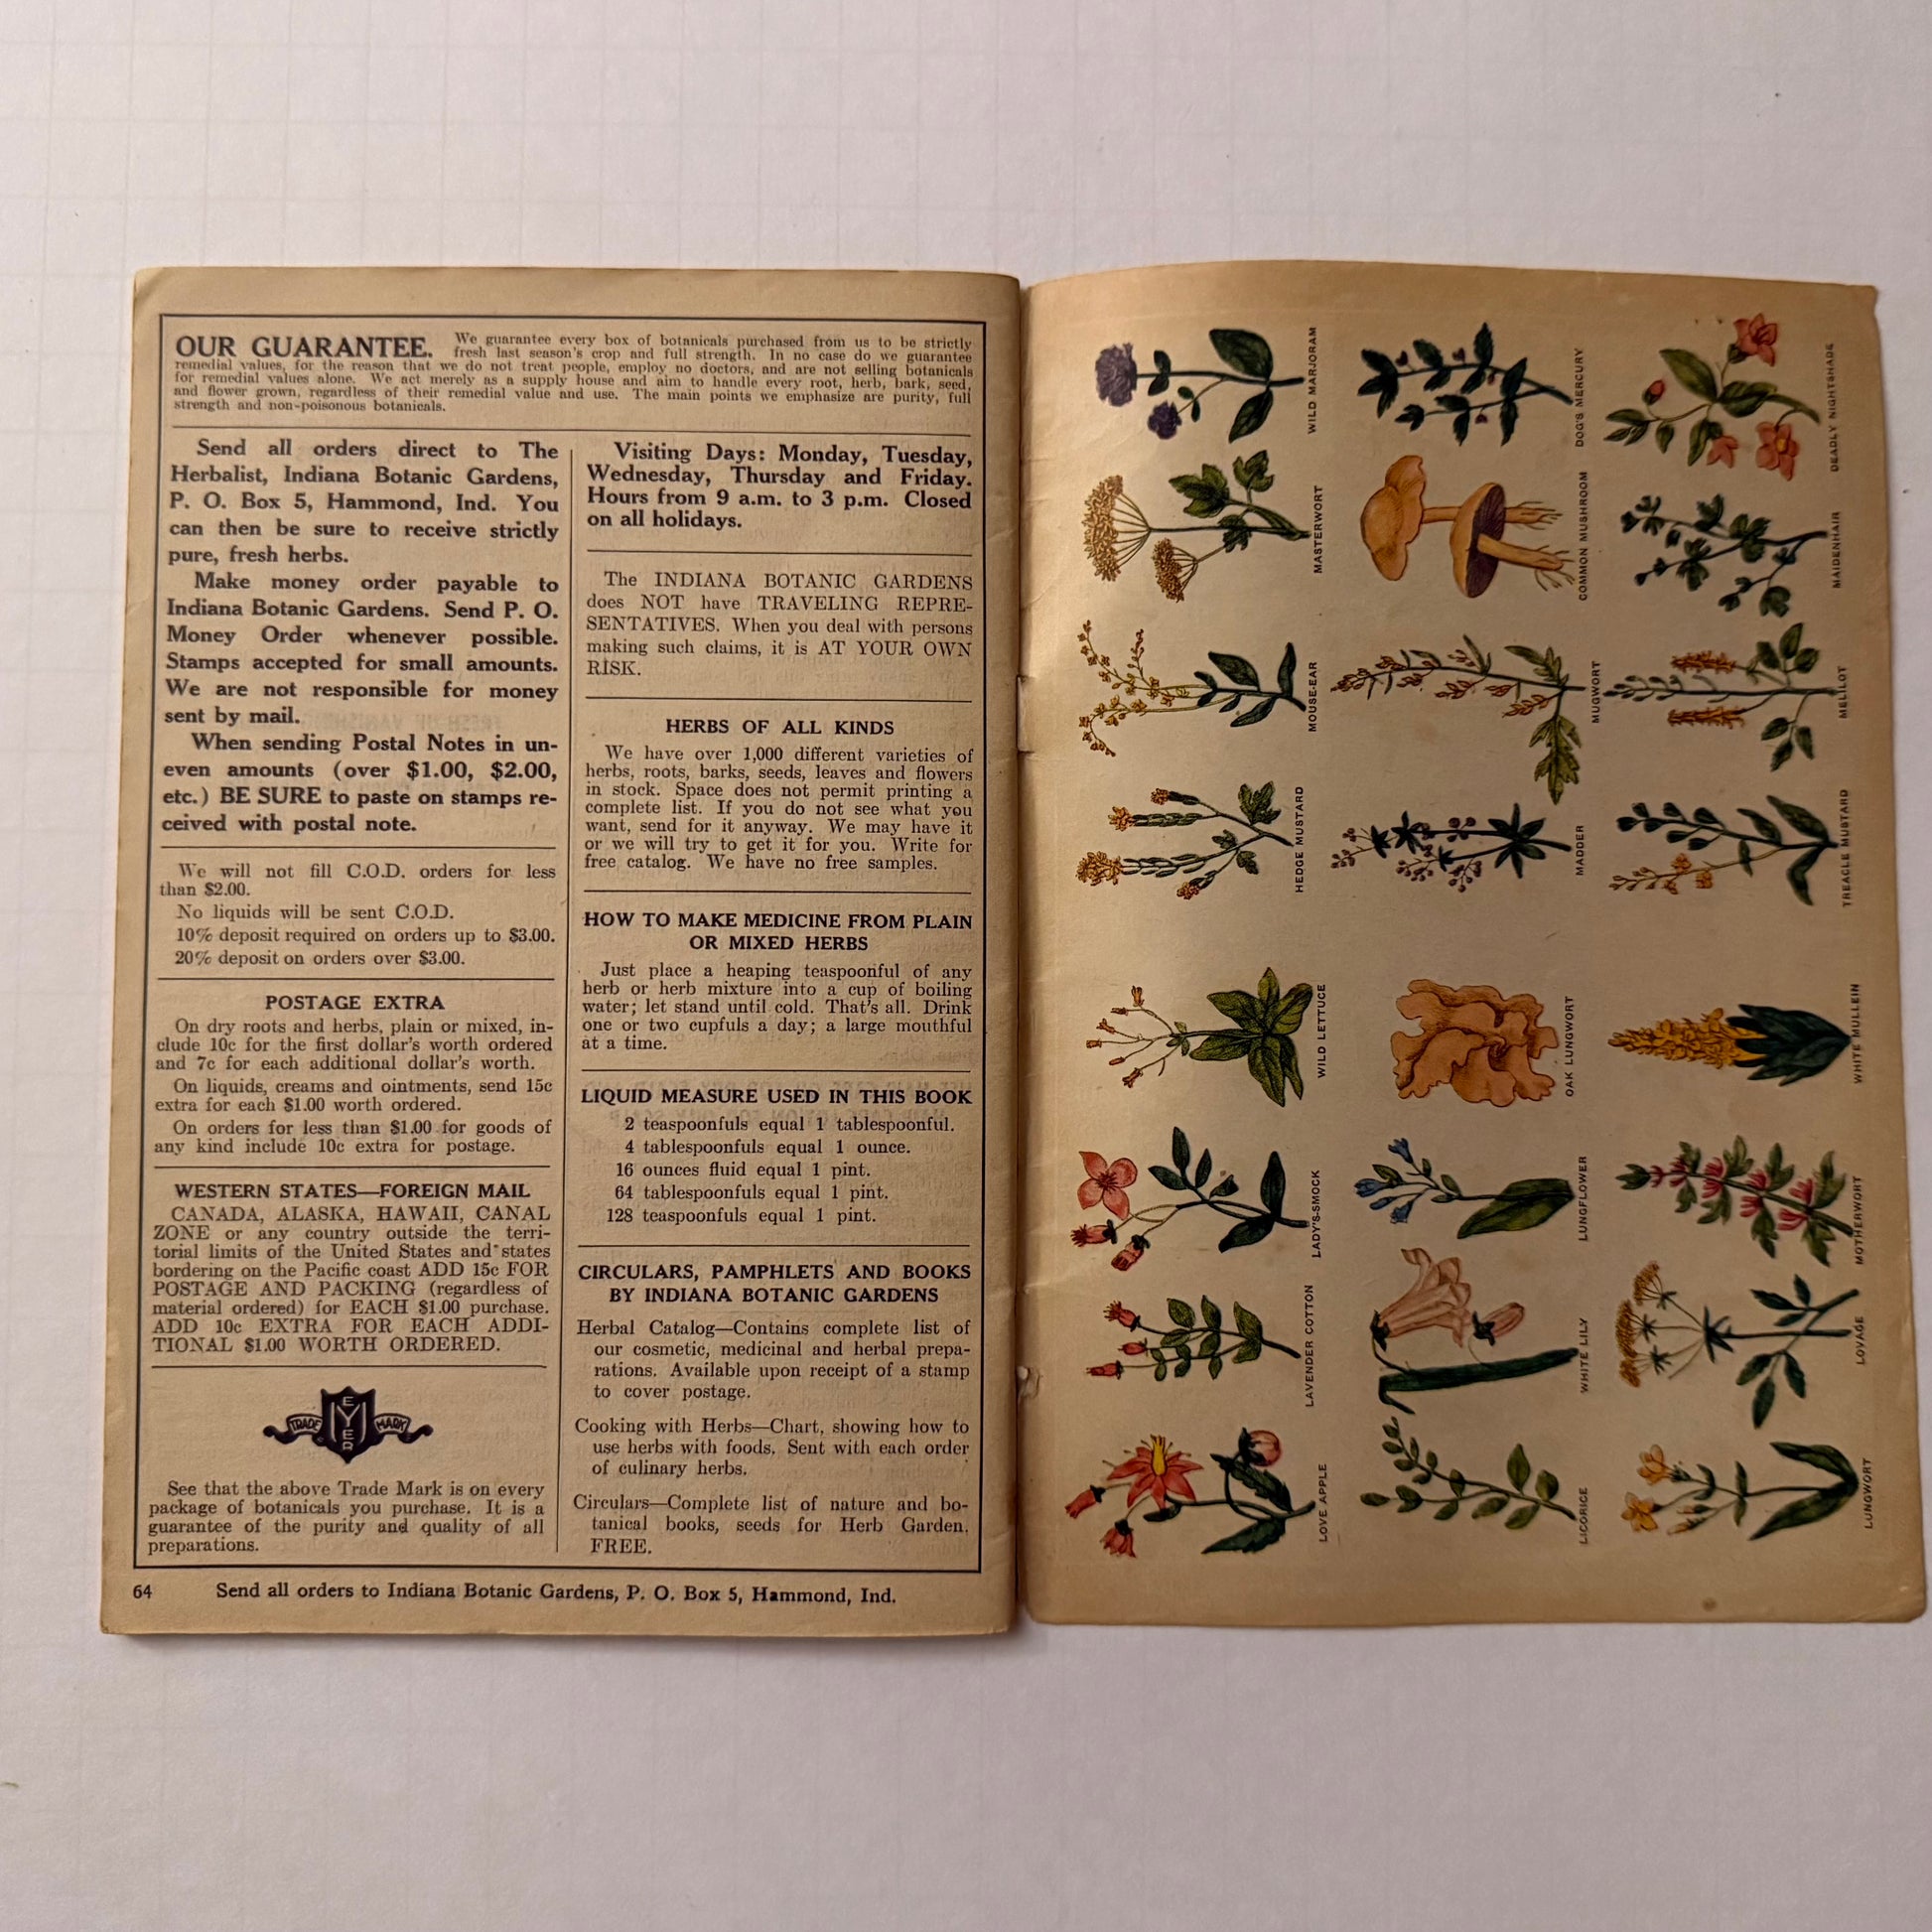 OUR GUARANTEE. We guarantee every box of botanicals purchased from us to be strictly
fresh last season's crop and full strength. In no case do we guarantee
remedial values, for the reason that we do not treat people, employ no doctors, and are not selling botanicals
for remedial values alone. We act merely as a supply house and aim to handle every root, herb, bark, seed,
and flower grown, regardless of their remedial value and use. The main points we emphasize are purity, full
strength and non-poisonous botanicals.
Send all orders direct to The
Herbalist, Indiana Botanic Gardens,
P. O. Box 5, Hammond, Ind. You
can then be sure to receive strictly
pure, fresh herbs.
Make money order payable to
Indiana Botanic Gardens. Send P. O.
Money Order whenever possible.
Stamps accepted for small amounts.
We are not responsible for money
sent by mail.
When sending Postal Notes in un-
even amounts (over $1.00, $2.00,
etc.) BE SURE to paste on stamps re-
ceived with postal note.
We will not fill C.O.D. orders for less
than $2.00.
No liquids will be sent C.O.D.
10% deposit required on orders up to $3.00.
20% deposit on orders over $3.00.
POSTAGE EXTRA
On dry roots and herbs, plain or mixed, in-
clude 10c for the first dollar's worth ordered
and 7c for each additional dollar's worth.
On liquids, creams and ointments, send 15c
extra for each $1.00 worth ordered.
On orders for less than $1.00 for goods of
any kind include 10c extra for postage.
WESTERN STATES—FOREIGN MAIL
CANADA, ALASKA, HAWAII, CANAL
ZONE or any country outside the terri-
torial limits of the United States and states
bordering on the Pacific coast ADD 15c FOR
POSTAGE AND PACKING (regardless of
material ordered) for EACH $1.00 purchase.
ADD 10c EXTRA FOR EACH ADDI-
TIONAL $1.00 WORTH ORDERED.
TRADE MEYER MARK
See that the above Trade Mark is on every
package of botanicals you purchase. It is a
guarantee of the purity and quality of all
preparations.
Visiting Days: Monday, Tuesday,
Wednesday, Thursday and Friday.
Hours from 9 a.m. to 3 p.m. Closed
on all holidays.
The INDIANA BOTANIC GARDENS
does NOT have TRAVELING REPRE-
SENTATIVES. When you deal with persons
making such claims, it is AT YOUR OWN
RISK.
HERBS OF ALL KINDS
We have over 1,000 different varieties of
herbs, roots, barks, seeds, leaves and flowers
in stock. Space does not permit printing a
complete list. If you do not see what you
want, send for it anyway. We may have it
or we will try to get it for you. Write for
free catalog. We have no free samples.
HOW TO MAKE MEDICINE FROM PLAIN
OR MIXED HERBS
Just place a heaping teaspoonful of any
herb or herb mixture into a cup of boiling
water; let stand until cold. That's all. Drink
one or two cupfuls a day; a large mouthful
at a time.
LIQUID MEASURE USED IN THIS BOOK
2 teaspoonfuls equal 1 tablespoonful.
4 tablespoonfuls equal 1 ounce.
16 ounces fluid equal 1 pint.
64 tablespoonfuls equal 1 pint.
128 teaspoonfuls equal 1 pint.
CIRCULARS, PAMPHLETS AND BOOKS
BY INDIANA BOTANIC GARDENS
Herbal Catalog—Contains complete list of
our cosmetic, medicinal and herbal prepa-
rations. Available upon receipt of a stamp
to cover postage.
Cooking with Herbs—Chart, showing how to
use herbs with foods. Sent with each order
of culinary herbs.
Circulars—Complete list of nature and bo-
tanical books, seeds for Herb Garden.
FREE.
64 Send all orders to Indiana Botanic Gardens, P. O. Box 5, Hammond, Ind.
LOVE APPLE
LAVENDER COTTON
LADY'S-SMOCK
WILD LETTUCE
HEDGE MUSTARD
MOUSE-EAR
MASTERWORT
WILD MARJORAM
LICORICE
WHITE LILY
LUNGFLOWER
OAK LUNGWORT
MADDER
MUGWORT
COMMON MUSHROOM
DOG'S MERCURY
LUNGWORT
LOVAGE
MOTHERWORT
WHITE MULLEIN
TREACLE MUSTARD
MELILOT
MAIDENHAIR
DEADLY NIGHTSHADE